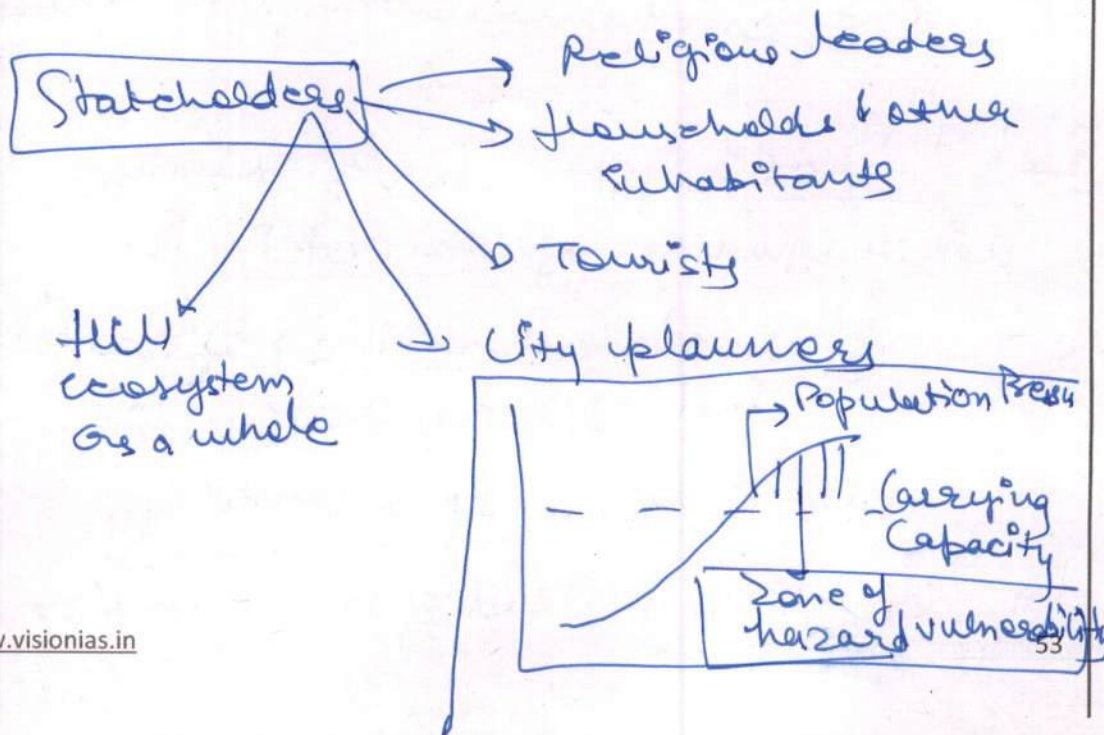 Stakeholders
Religious leaders
Households & other
inhabitants
Tourists
City planners
Hill
ecosystem
as a whole
Population Press
Carrying
Capacity
Zone of
hazard vulnerability
v.visionias.in
53